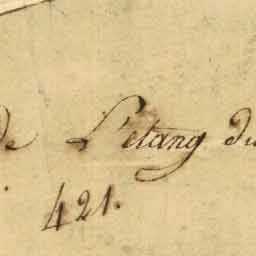 de L'etang du
421.